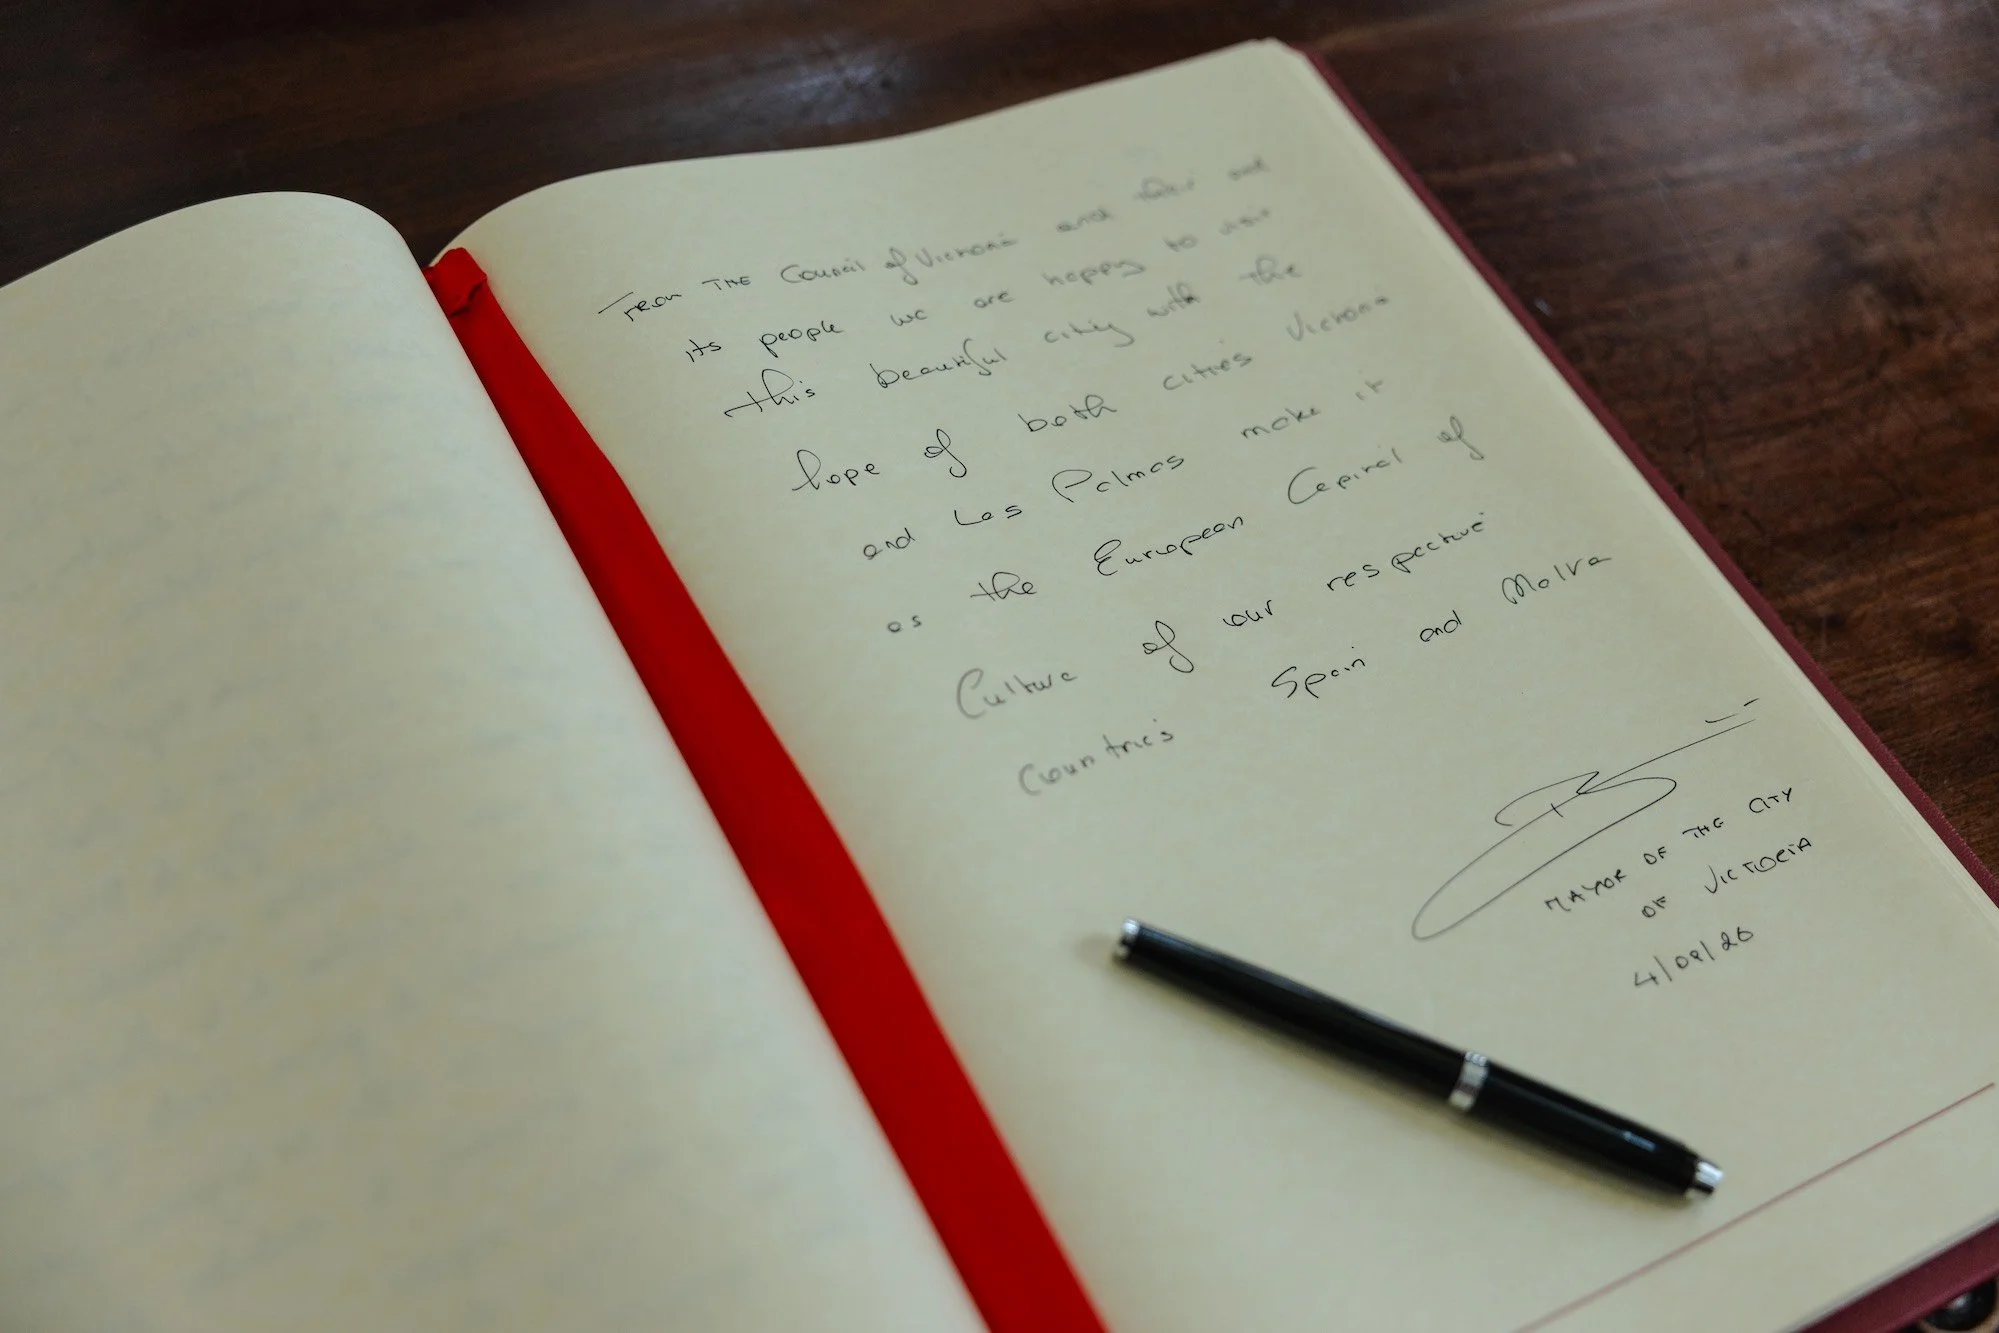 From THE Council of Victoria and and
its people we are happy to visit
this beautiful city with the
hope of both cities Victoria
and Las Palmas make it
as the European Capital of
Culture of our respective
Countries Spain and Malta
MAYOR OF THE CITY
OF VICTORIA
4/09/20